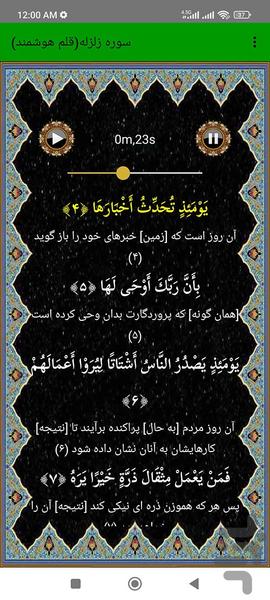 12:00 AM
سوره زلزله(قلم هوشمند)
0m,23s
يَوْمَئِذٍ تُحَدِّثُ أَخْبَارَهَا ﴿۴﴾
آن روز است که [زمین] خبرهای خود را باز گوید
(۴)
بِأَنَّ رَبَّكَ أَوْحَى لَهَا ﴿۵﴾
[همان گونه] که پروردگارت بدان وحی کرده است
(۵)
يَوْمَئِذٍ يَصْدُرُ النَّاسُ أَشْتَاتًا لِيُرَوْا أَعْمَالَهُمْ
﴿۶﴾
آن روز مردم [به حال] پراکنده برآیند تا [نتیجه]
کارهایشان به آنان نشان داده شود (۶)
فَمَنْ يَعْمَلْ مِثْقَالَ ذَرَّةٍ خَيْرًا يَرَهُ ﴿۷﴾
پس هر که هموزن ذره ای نیکی کند [نتیجه] آن را